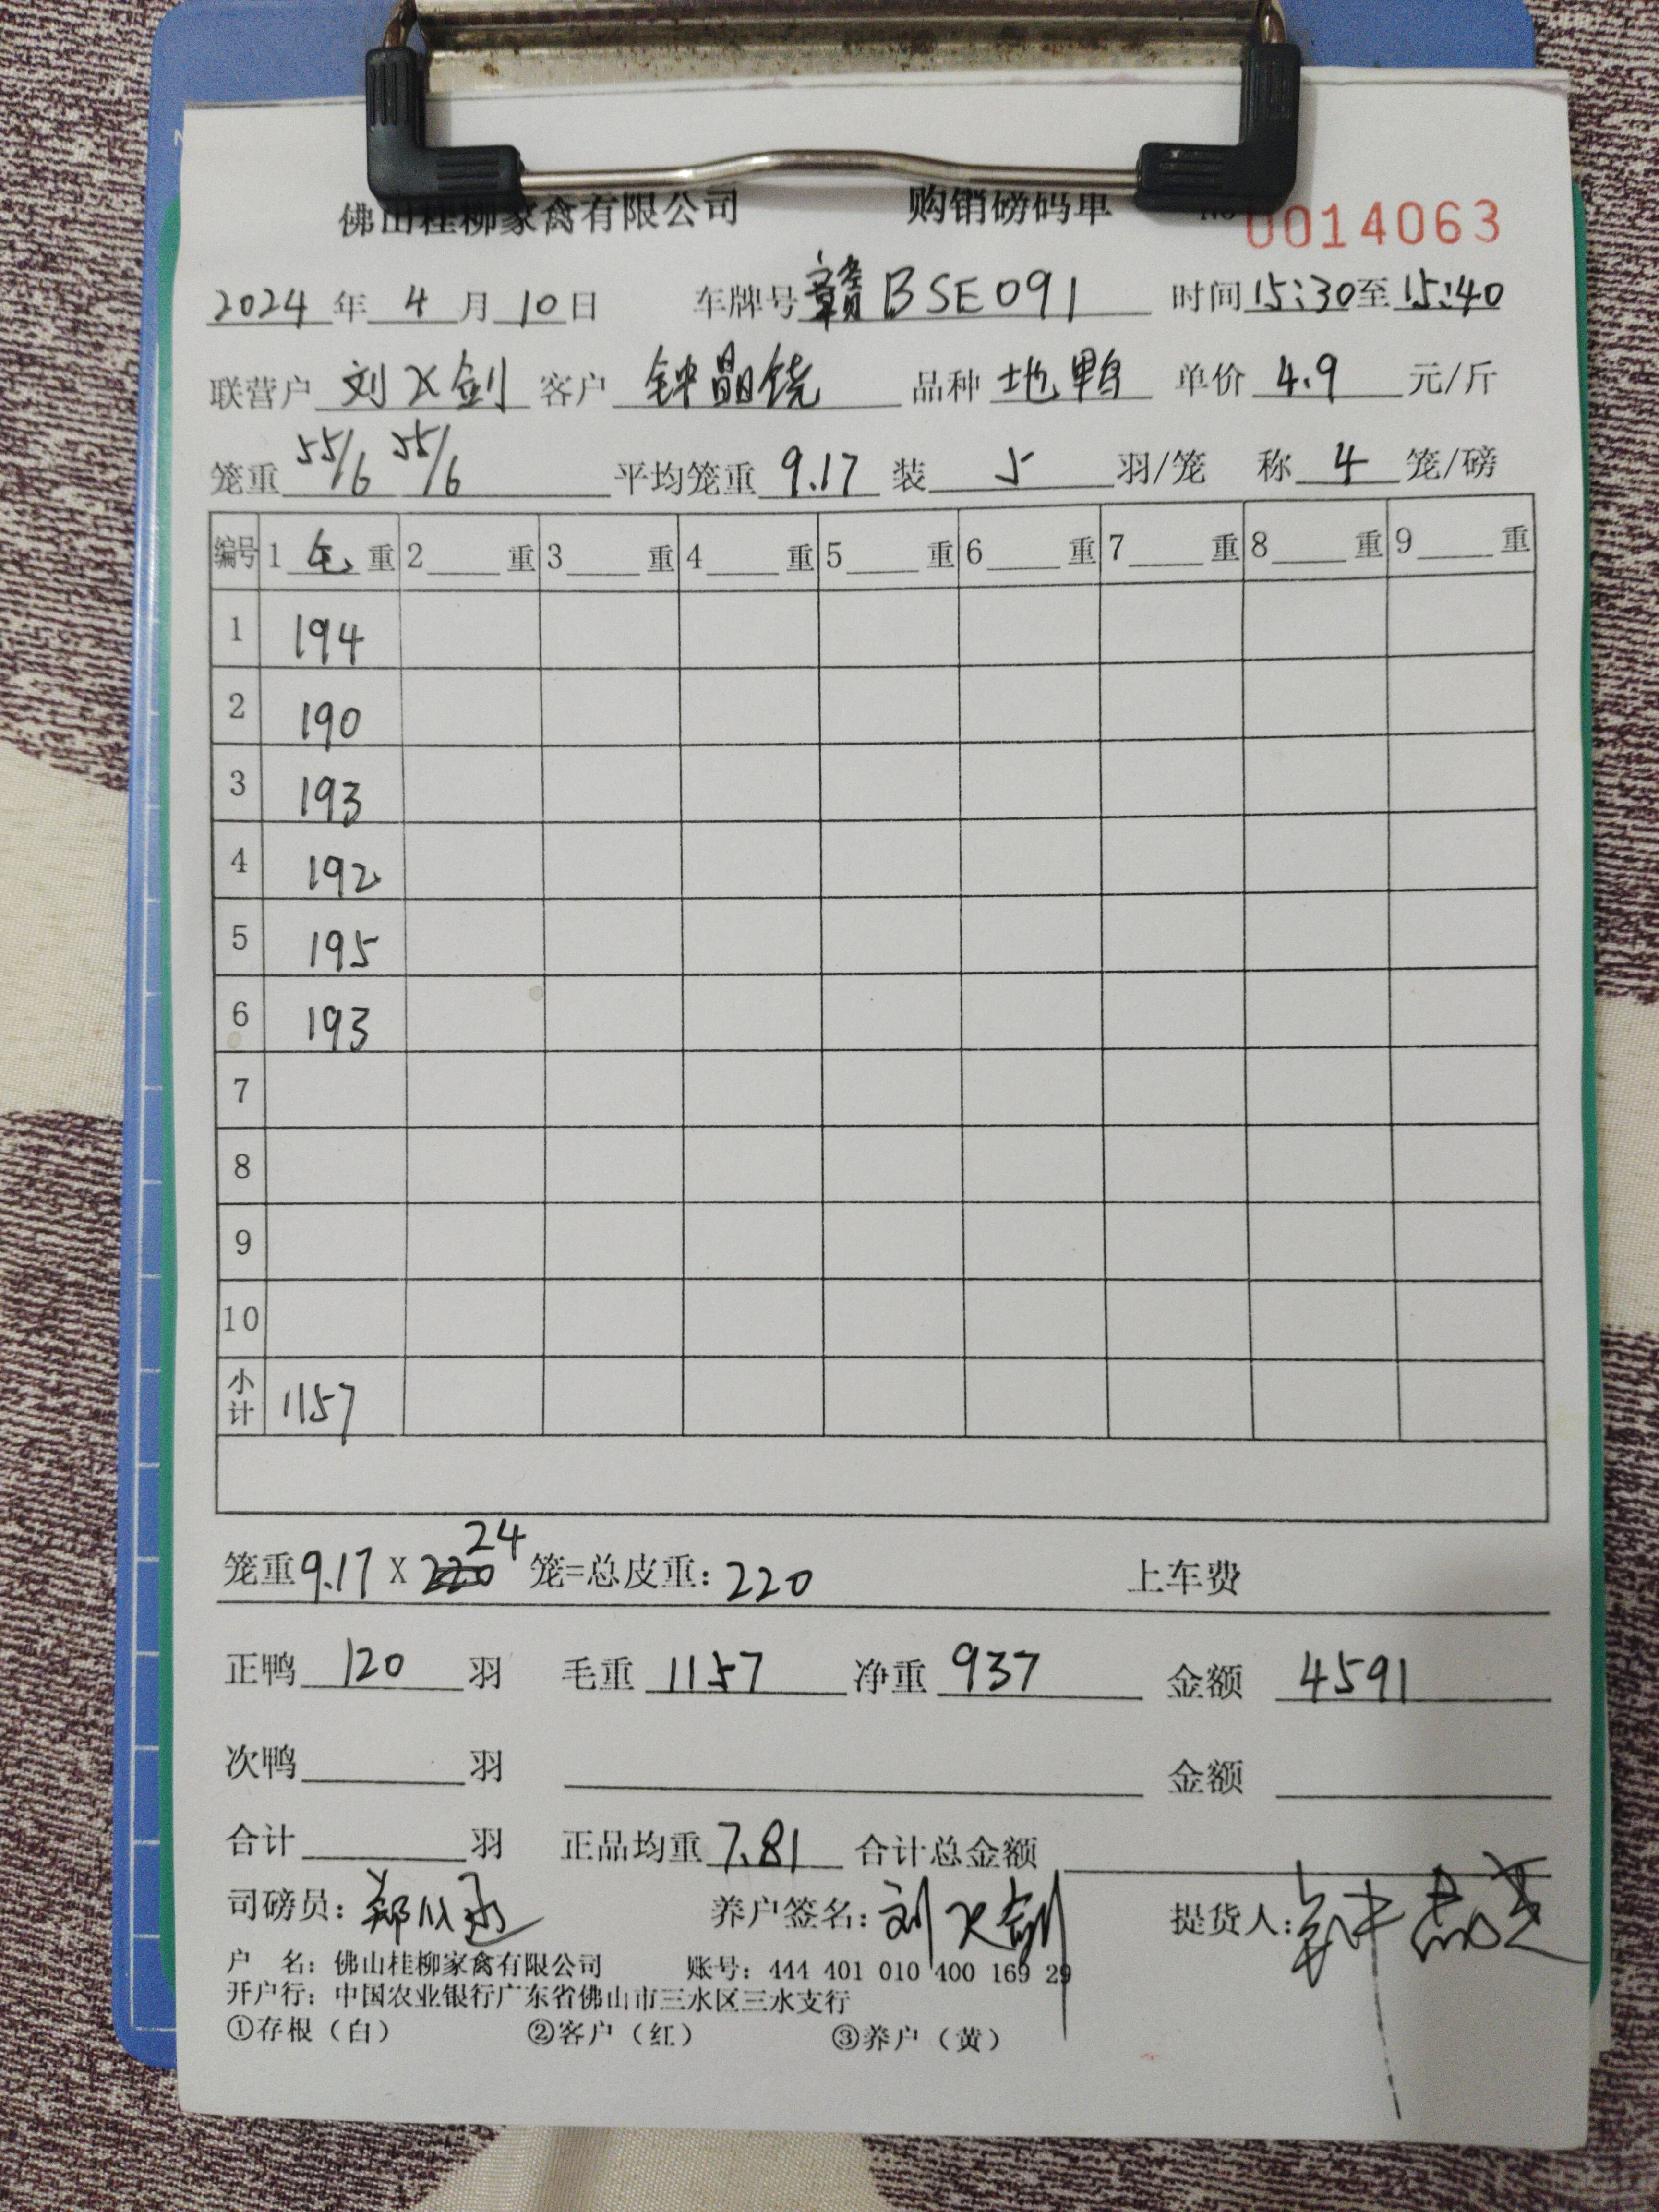 佛山桂柳家禽有限公司 购销磅码单 No 0014063
2024年4月10日 车牌号 赣BSE091 时间15:30至15:40
联营户 刘火剑 客户 钟晶饶 品种 地鸭 单价 4.9 元/斤
笼重 55/6 55/6 平均笼重 9.17 装 5 羽/笼 称 4 笼/磅
编号 1 毛 重 2 重 3 重 4 重 5 重 6 重 7 重 8 重 9 重
1 194
2 190
3 193
4 192
5 195
6 193
7
8
9
10
小计 1157
笼重9.17 X 24 笼=总皮重：220 上车费
正鸭 120 羽 毛重 1157 净重 937 金额 4591
次鸭 羽 金额
合计 羽 正品均重 7.81 合计总金额
司磅员：郑 养户签名：刘火剑 提货人：钟
户 名：佛山桂柳家禽有限公司 账号：444 401 010 400 169 29
开户行：中国农业银行广东省佛山市三水区三水支行
①存根（白） ②客户（红） ③养户（黄）